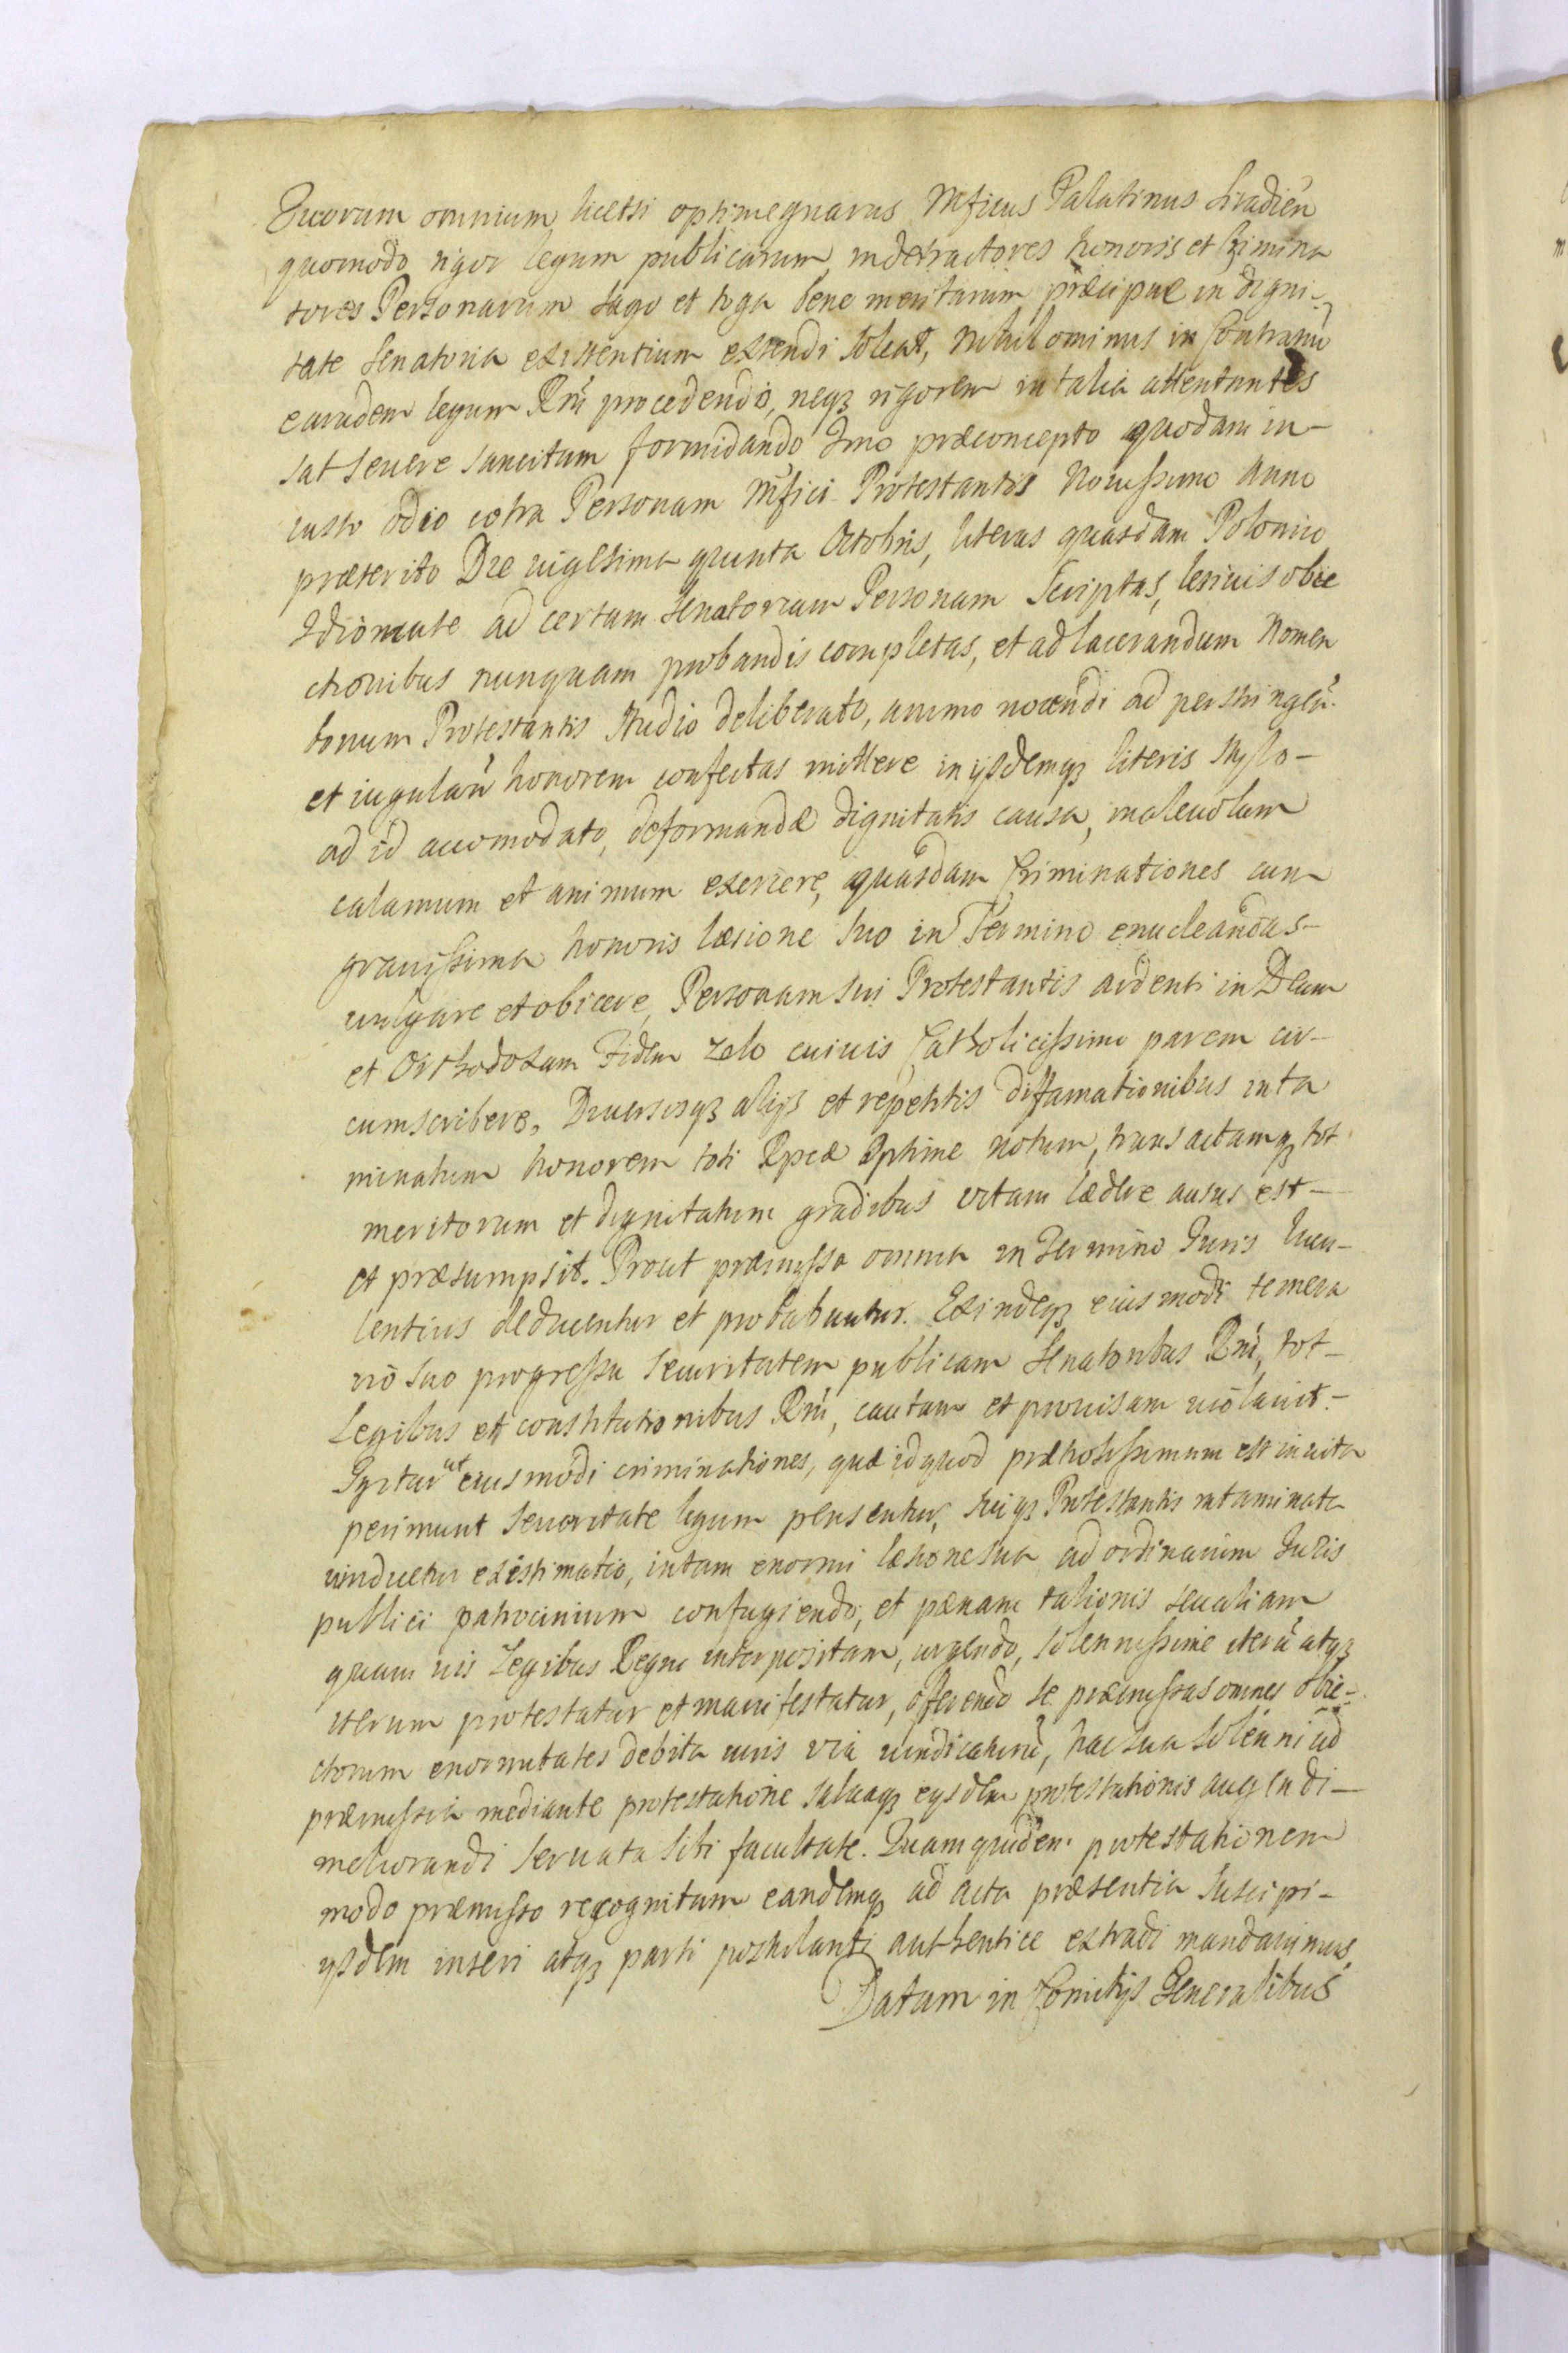 Quorum omnium, licetsi optime gnarus Mficus Palatinus Siradień
quomodo rigor legum publicarum, in detractores honoris et Crimina
tores Personarum sago et toga bene meritarum, præcipue in digni-
tate Senatoria existentium extendi soleat, nihilominus in Contrariū
earudem legum Rńi procedendo, neqz rigorem in talia attentantes
sat seuere sancitum formidando Imo præconcepto quodam in-
iusto odio cotra Personam Mfici Protestantis Nouissimo Anno
præterito Die uigesima quinta Octobris, literas quasdam Polonico
Idiomate ad certam Senatoriam Personam Scriptas, lesiuis obie
ctionibus nunquam probandis completas, et ad lacerandum Nomen
bonum Protestantis Studio deliberato, animo nocendi ad perstringen̄.
et iugulan̄ honorem confectas mittere in ijsdemqz literis stylo-
ad id accomodato, deformandæ dignitatis causa, maleuolum
calamum et animum exercere, quasdam Criminationes cum
grauissima honoris læsione suo in Termino enucleandas-
uulgare et obicere, Personam sui Protestantis ardenti in Deum
et Orthodoxam Fidem zelo cuiuis Catholicissimo parem cir-
cumscribere, Diuersisqz alijs et repetitis diffamationibus inta
minatum honorem toti Rpcæ optime notum, transactamqz tot
meritorum et dignitatum gradibus vitam lædere ausus est-
et præsumpsit. Prout præmissa omnia in Termino Iuris lucu-
lentius deducentur et probabuntur. Exindeqz eiusmodi temera
rio suo progressu securitatem publicam Senatoribus Rńi, tot-
Legibus et constitutionibus Rńi, cautam et prouisam uiolauit.-
Igitur ut eiusmodi criminationes, quæ id quod prætiosissimum est in uita
perimunt seueritate legum pensentur, suiqz Protestantis intaminata
uindicetur existimatio, in tam enormi læsione sua ad ordinarium Iuris
publici patrocinium confugiendo, et pænam talionis seu aliam
quam uis Legibus Regni interpositam, urgendo, solennissime iterū atqz
iterum protestatur et manifestatur, offerendo se præmissas omnes obie-
ctorum enormitates debita iuris via uindicaturū, hac sua solenni ad
præmissa mediante protestatione saluaqz eysdem protestationis augendi-
meliorandi seruata sibi facultate. Quam quidem protestationem
modo præmisso recognitam eandemqz ad acta præsentia suscipi-
ysdem inseri atqz parti postulanti authentice extradi mandauimus,
Datum in Comitijs Generalibus